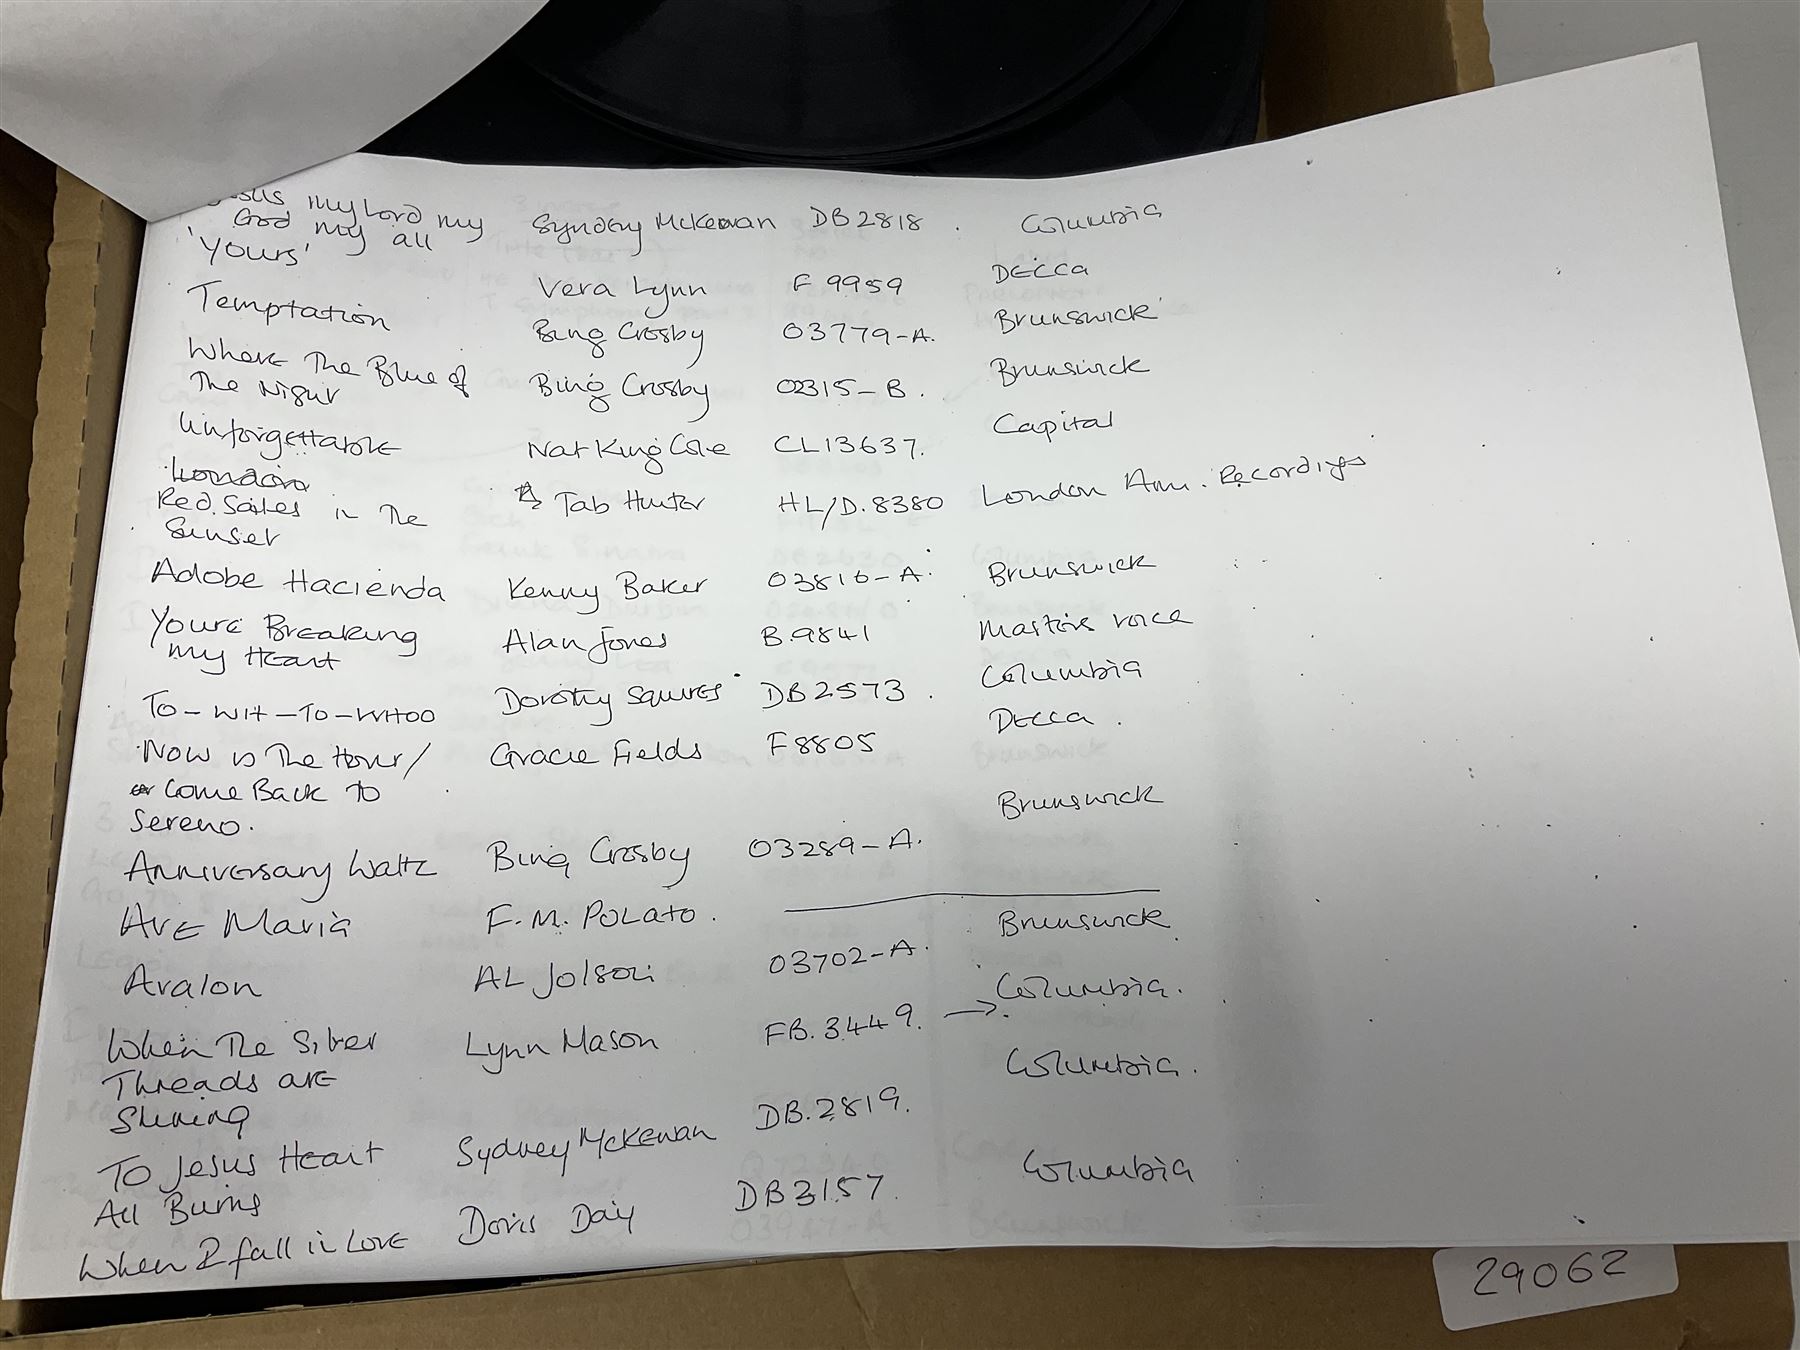 my Lord my
God my all Syndey McKewan DB2818 . Columbia
'Yours' Vera Lynn F 9959 DECCA
Temptation Bing Crosby 03779-A. Brunswick
Where The Blue of
The Night Bing Crosby 02315-B. Brunswick
Unforgettable Nat King Cole CL13637. Capital
London
Red Sales in The
Sunset Tab Hunter HL/D.8380 London Am. Recordings
Adobe Hacienda Kenny Baker 03816-A. Brunswick
Youre Breaking
my Heart Alan Jones B.9841 Masters voice
To-Wit-To-Whoo Dorothy Squires DB2573. Columbia
Now is The Hour/ Gracie Fields F8805 DECCA.
Come Back To
Sereno.
Anniversary Waltz Bing Crosby 03289-A. Brunswick
Ave Maria F.M. Polato.
Avalon AL Jolson 03702-A. Brunswick
When The Silver Lynn Mason FB.3449. → Columbia.
Threads are
Shining
To Jesus Heart Sydney McKewan DB.2819. Columbia.
All Burns
When I fall in Love Doris Day DB3157 Columbia
29062